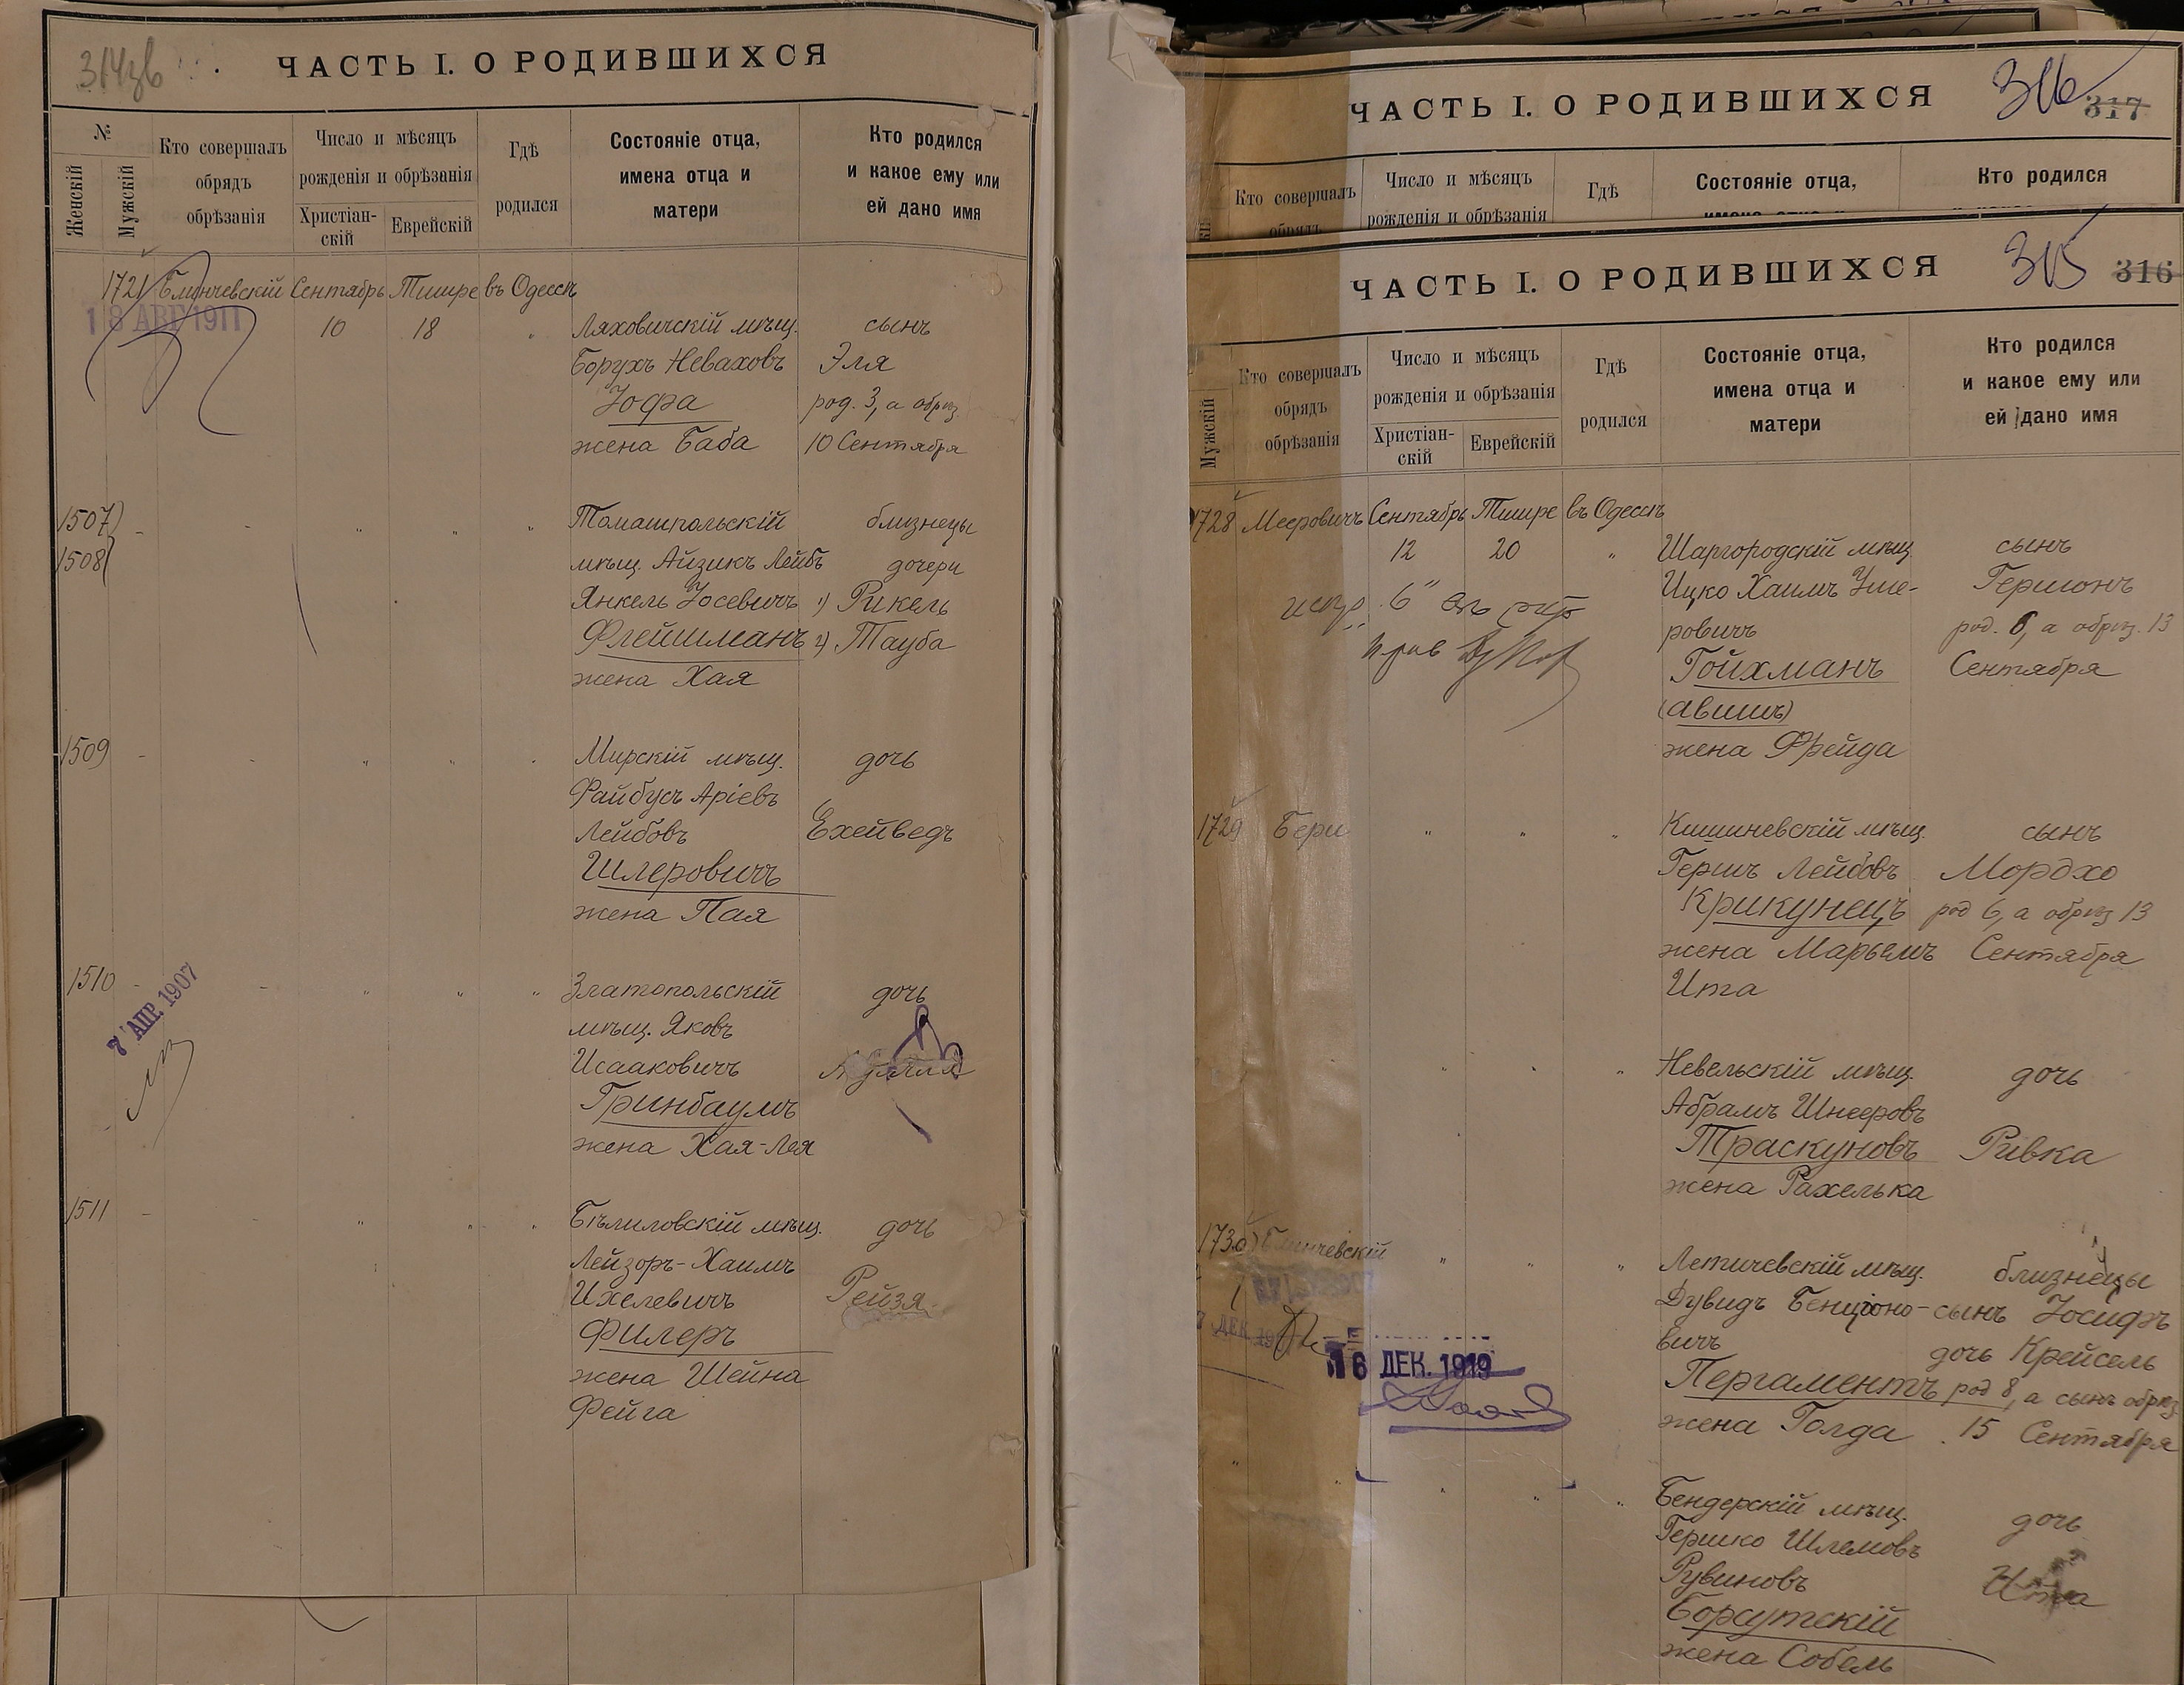 314зв
ЧАСТЬ I. О РОДИВШИХСЯ
№
Женскій
Мужскій
Кто совершалъ
обрядъ
обрѣзанія
Число и мѣсяцъ
рожденія и обрѣзанія
Христіан-
скій
Еврейскій
Гдѣ
родился
Состояніе отца,
имена отца и
матери
Кто родился
и какое ему или
ей дано имя
1721 Блинчевскій Сентябрь Тишре въ Одессѣ
18 АВГ 1911
10 18 " Ляховичскій мѣщ. сынъ
Борухъ Неваховъ Эля
Іофа род. 3, а обрѣз.
жена Баба 10 Сентября
1507 - - " " " Томашпольскій близнецы
1508 мѣщ. Айзикъ Лейбъ дочери
Янкель Іосевичъ 1) Рикель
Флейшманъ 2) Тауба
жена Хая
1509 - - " " " Мирскій мѣщ. дочь
Файбусъ Аріевъ
Лейбовъ Ехейведъ
Шлеровичъ
жена Пая
1510 - - " " " Златопольскій дочь
7 АПР. 1907
мѣщ. Яковъ
Исааковичъ
Гринбаумъ
жена Хая-Лея
1511 - - " " " Бѣлиловскій мѣщ. дочь
Лейзоръ-Хаимъ
Ихелевичъ Рейзя
Филеръ
жена Шейна
Фейга
ЧАСТЬ I. О РОДИВШИХСЯ
316
317
Кто совершалъ
обрядъ
Число и мѣсяцъ
рожденія и обрѣзанія
Гдѣ
Состояніе отца,
Кто родился
ЧАСТЬ I. О РОДИВШИХСЯ
315
316
Мужскій
Кто совершалъ
обрядъ
обрѣзанія
Число и мѣсяцъ
рожденія и обрѣзанія
Христіан-
скій
Еврейскій
Гдѣ
родился
Состояніе отца,
имена отца и
матери
Кто родился
и какое ему или
ей дано имя
1728 Мееровичъ Сентябрь Тишре въ Одессѣ
12 20 " Шаргородскій мѣщ. сынъ
Ицко Хаимъ Уше- Гершонъ
ровичъ род. 6, а обрѣз. 13
Гойхманъ Сентября
(авишъ)
жена Фрейда
1729 Бери " " " Кишиневскій мѣщ. сынъ
Гершъ Лейбовъ Мордхо
Крикунецъ род 6, а обрѣз 13
жена Марьемъ Сентября
Ита
" " " Невельскій мѣщ. дочь
Абрамъ Шнееровъ
Траскуновъ Ривка
жена Рахелька
1730 Блинчевскій " " " Летичевскій мѣщ. близнецы
Дувидъ Бенціоно- сынъ Іосифъ
вичъ дочь Крейсель
16 ДЕК. 1919
Пергаментъ род 8, а сынъ обрѣз.
жена Голда 15 Сентября
" " " Бендерскій мѣщ. дочь
Гершко Шлемовъ
Рувиновъ Ита
Борсутскій
жена Собель